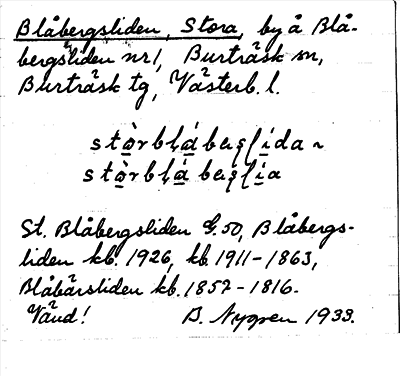 Blåbergsliden, Stora, by å Blå-
bergsliden nr 1, Burträsk sn,
Burträsk tg, Västerb. l.
stòrbḷábæṣḷida ~
stòrbḷábæṣḷia
St. Blåbergsliden G. 50, Blåbergs-
liden kb. 1926, kb. 1911-1863,
Blåbärsliden kb. 1857-1816.
Vänd! B. Nygren 1933.